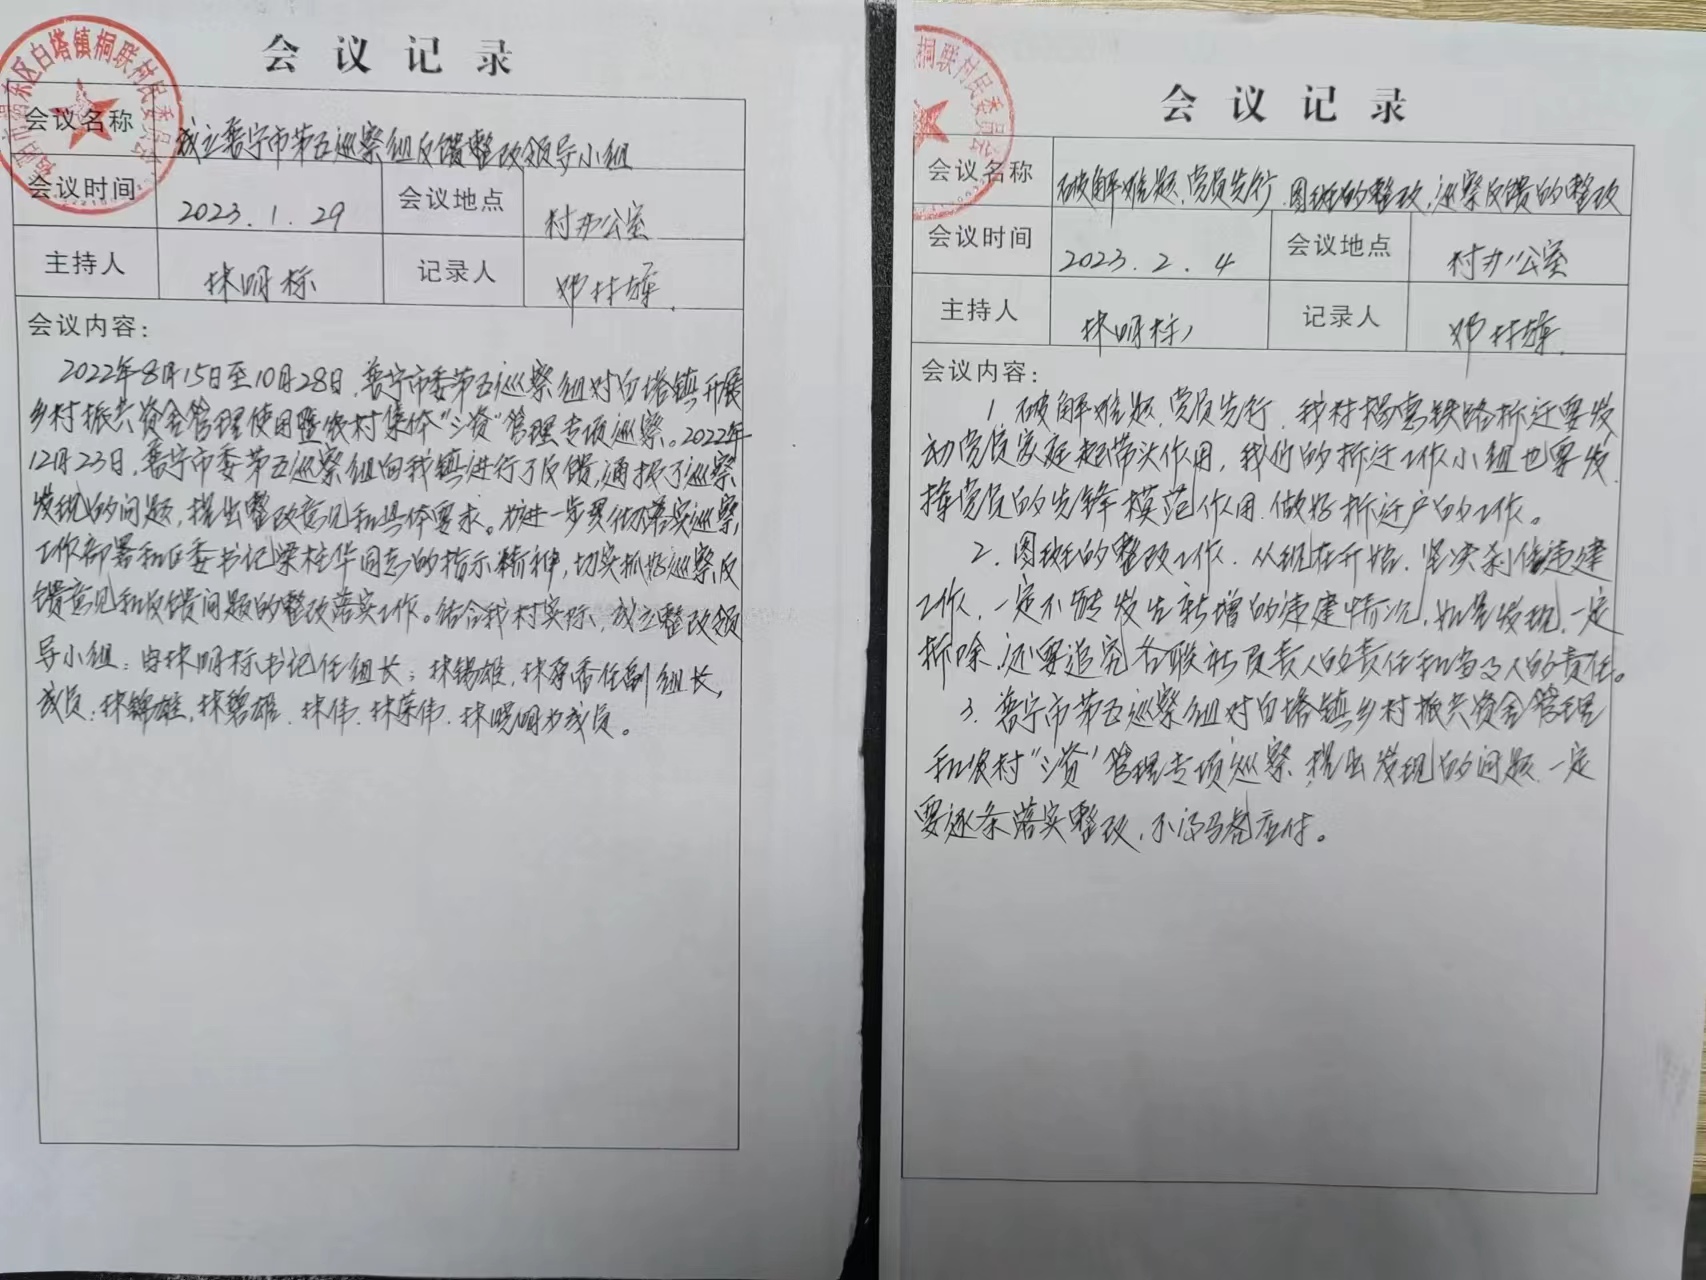 会议记录
会议名称 成立普宁市第五巡察组反馈整改领导小组
会议时间 2023.1.29 会议地点 村办公室
主持人 林明标 记录人 邓林雄
会议内容：
2022年8月15日至10月28日，普宁市委第五巡察组对白塔镇开展
乡村振兴资金管理使用暨农村集体“三资”管理专项巡察。2022年
12月23日，普宁市委第五巡察组向我镇进行了反馈，通报了巡察
发现的问题，提出整改意见和具体要求。为进一步贯彻落实巡察
工作部署和区委书记梁桂华同志的指示精神，切实抓好巡察反
馈意见和反馈问题的整改落实工作。结合我村实际，成立整改领
导小组：由林明标书记任组长；林锡雄，林秀香任副组长，
成员：林锦雄，林碧雄、林伟、林荣伟、林晓明为成员。
白塔镇桐联村民委员会
会议记录
会议名称 破解难题、党员先行、图斑的整改，巡察反馈的整改
会议时间 2023.2.4 会议地点 村办公室
主持人 林明标 记录人 邓林雄
会议内容：
1、破解难题、党员先行，我村揭惠铁路拆迁要发
动党员家庭起带头作用，我们的拆迁工作小组也要发
挥党员的先锋模范作用、做好拆迁户的工作。
2、图斑的整改工作、从现在开始、坚决刹住违建
工作、一定不能发生新增的违建情况，如果发现、一定
拆除、还要追究各联系负责人的责任和当事人的责任。
3、普宁市第五巡察组对白塔镇乡村振兴资金管理
和农村“三资”管理专项巡察，提出发现的问题、一定
要逐条落实整改，不得马虎应付。
桐联村民委员会